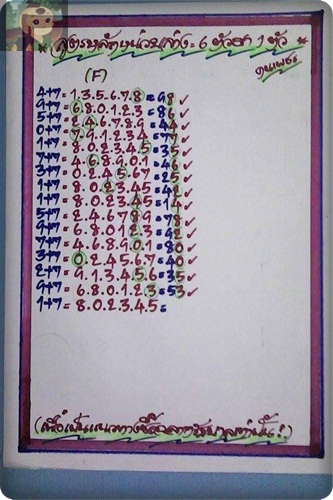 * สูตรหลักหน่วยล่าง = 6 ตัวชา 1 ตัว *
(F)
4+7 = 1.3.5.6.7.8 = 98 ✓
9+7 = 6.8.0.1.2.3 = 86 ✓
5+7 = 2.4.6.7.8.9 = 44 ✓
0+7 = 7.9.1.2.3.4 = 77 ✓
1+7 = 8.0.2.3.4.5 = 35 ✓
7+7 = 4.6.8.9.0.1 = 46 ✓
3+7 = 0.2.4.5.6.7 = 25 ✓
1+7 = 8.0.2.3.4.5 = 42 ✓
1+7 = 8.0.2.3.4.5 = 14 ✓
5+7 = 2.4.6.7.8.9 = 78 ✓
9+7 = 6.8.0.1.2.3 = 92 ✓
7+7 = 4.6.8.9.0.1 = 80 ✓
3+7 = 0.2.4.5.6.7 = 40 ✓
2+7 = 9.1.3.4.5.6 = 35 ✓
9+7 = 6.8.0.1.2.3 = 53 ✓
1+7 = 8.0.2.3.4.5 =
(เพื่อเป็นแนวทางซื้อสลากรัฐบาลเท่านั้น!)